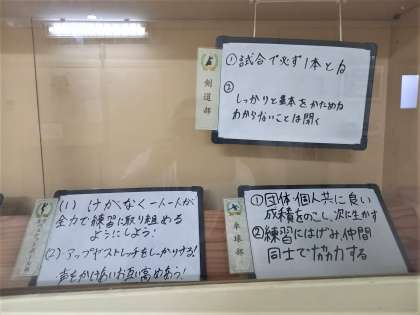 剣道部
①試合で必ず1本とる
②
しっかりと基本をかためる
わからないことは聞く
(1) けがなく一人一人が
全力で練習に取り組める
ようにしよう!
(2) アップやストレッチをしっかりする!
声をかけあいお互い高めあう!
卓球部
①団体・個人共に良い
成績をのこし、次に生かす
②練習にはげみ、仲間
同士で協力する